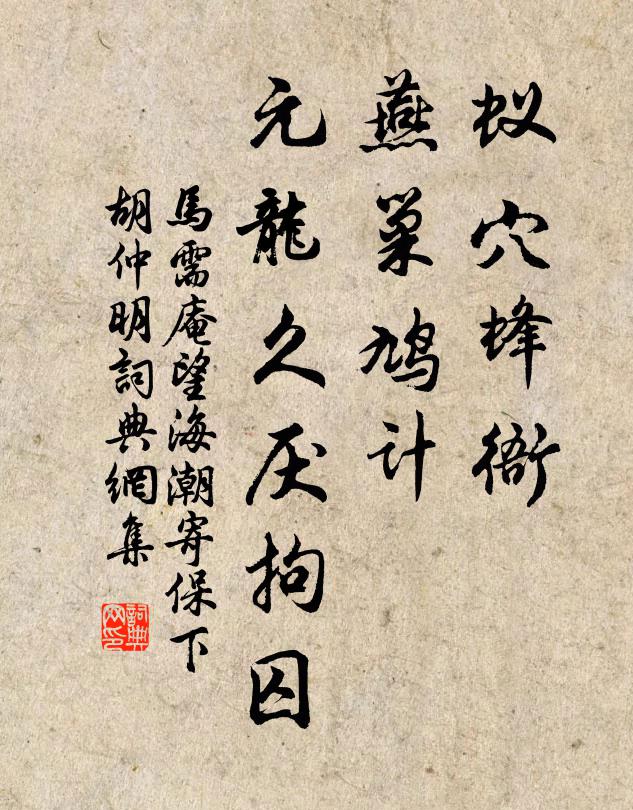 蚁穴蜂衙
燕巢鸠计
元龍久厌拘囚
馬需庵望海潮寄保下
胡仲明詞典網集
詞典
网印